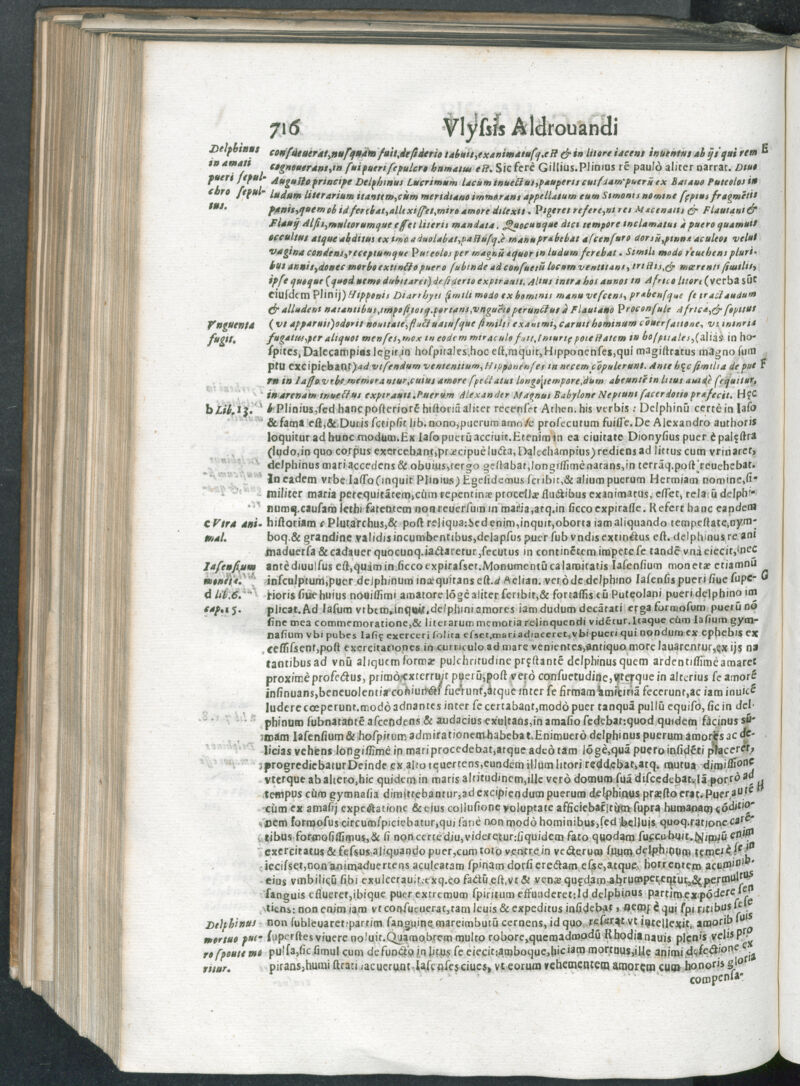 716 Vlyſsis Aldrouandi
Delphinus
in amati
pueri ſepul-
chro ſepul-
tus.
conſueuerat, nuſquàm fuit, deſiderio tabuit, exanimatuſq. eſt & in litore iacens inuentus ab ijs qui rem E
cognouerant, in ſui pueri ſepulcro humatus eſt. Sic ferè Gillius. Plinius rē paulò aliter narrat. Diuo
Auguſto principe Delphinus Lucrinum lacum inuectus, pauperis cuiuſdam puerū ex Baiano Puteolos in
ludum literarium itantem, cùm meridiano immorans appellatum eum Simonis nomine ſępius fragmētis
panis, quem ob id ferebat, allexiſſet, miro amore dilexit. Pigeret referre, ni res Mecœnatis & Flauiani &
Flauij Alfij, multorumque eſſet literis mandata. Quocunque diei tempore inclamatus à puero quamuis
occultus atque abditus ex imo aduolabat, paſtuſq. è manu præbebat aſcenſuro dorsū, pinnæ aculeos velut
vagina condens, receptumque Puteolos per magnū æquor in ludum ferebat. Simili modo reuehens pluri-
bus annis, donec morbo extincto puero ſubinde ad conſuetū locum ventitans, triſtis, & mœrenti ſimilis,
ipſe quoque (quod nemo dubitaret) deſiderio expirauit. Alius intra hos annos in Africo litore (verba sūt
eiuſdem Plinij) Hipponis Diarrhyti ſimili modo ex hominis manu veſcens, præbenſque ſe tractandum
& alludens natantibus, impoſitoſq. portans, vnguēto perunctus à Flauiano Proconſule Africæ, & ſopitus
Vnguenta
fugit.
(vt apparuit) odoris nouitate, fluctuatuſque ſimilis exanimi, caruit hominum cōuerſatione, vt iniuria
fugatus, per aliquot menſes, mox in eodem miraculo fuit. Iniuriæ poteſtatem in hoſpitales, (alias in ho-
ſpites, Dalecampius legit in hoſpitales, hoc eſt, inquit, Hipponenſes, qui magiſtratus magno ſum
ptu excipiebant) ad viſendum venientium, Hipponenſes in necem cōpulerunt. Ante hęc ſimilia de pue F
ro in Iaſſo vrbe memorantur, cuius amore ſpectatus longo tempore, dum abeuntē in litus auidè ſequitur,
in arenam inuectus expirauit. Puerum Alexander Magnus Babylone Neptuni ſacerdotio præfecit. Hęc
b Lib. 13.
b Plinius, ſed hanc poſteriorē hiſtoriā aliter recenſet Athen. his verbis: Delphinū certè in Iaſo
& fama eſt, & Duris ſcripſit lib. nono, puerum amore proſecutum fuiſſe. De Alexandro authoris
loquitur ad hunc modum. Ex Iaſo puerū acciuit. Etenim in ea ciuitate Dionyſius puer è palęſtra
(ludo, in quo corpus exercebant, præcipuè lucta, Dalechampius) rediens ad littus cum vrinaret,
delphinus mari accedens & obuius, tergo geſtabat, longiſſimè natans, in terrāq. poſt reuehebat.
In eadem vrbe Iaſſo (inquit Plinius) Egeſidemus ſcribit, & alium puerum Hermiam nomine, ſi-
militer maria perequitātem, cùm repentinæ procellæ fluctibus exanimatus, eſſet, relatū delphi-
numq. cauſam lethi fatentem non reuerſum in maria, atq. in ſicco expiraſſe. Refert hanc eandem
c Vtra ani-
mal.
hiſtoriam c Plutarchus, & poſt reliqua: Sed enim, inquit, oborta iam aliquando tempeſtate, nym-
boq. & grandine validis incumbentibus, delapſus puer ſub vndis extinctus eſt. delphinus re ani
maduerſa & cadauer quocunq. iactaretur, ſecutus in continētem impete ſe tandē vnà eiecit, nec
Iaſenſium
moneta.
d lib. 6.
cap. 15.
antè diuulſus eſt, quàm in ſicco expiraſſet. Monumentū calamitatis Iaſenſium monetæ etiamnū
inſculptum, puer delphinum inæquitans eſt. d Aelian. verò de delphino Iaſenſis pueri ſiue ſupe- G
rioris ſiue huius nouiſſimi amatore lōgè aliter ſcribit, & fortaſſis cū Puteolani pueri delphino im
plicat. Ad Iaſum vrbem, inquit, delphini amores iam dudum decātati erga formoſum puerū nō
ſine mea commemoratione, & literarum memoria relinquendi vidētur. Itaque cùm Iaſium gym-
naſium vbi pubes Iaſię exerceri ſolita eſſet, mari adiaceret, vbi pueri qui nondum ex ephebis ex
ceſſiſſent, poſt exercitationes in curriculo ad mare venientes, antiquo more lauarentur, ex ijs na
tantibus ad vnū aliquem formæ pulchritudine pręſtantē delphinus quem ardentiſſimè amaret
proximè profectus, primò exterruit puerū, poſt verò conſuetudine, vterque in alterius ſe amorē
inſinuans, beneuolentia coniuncti fuerunt, atque inter ſe firmam amicitiā fecerunt, ac iam inuicē
ludere cœperunt, modò adnantes inter ſe certabant, modò puer tanquā pullū equiſo, ſic in del-
phinum ſubnatantē aſcendens & audacius exultans, in amaſio ſedebat: quod quidem facinus sū-
mam Iaſenſium & hoſpitum admirationem habebat. Enimuerò delphinus puerum amores ac de-
licias vehens longiſſimè in mari procedebat, atque adeò tam lōgè, quā puero inſidēti placeret,
progrediebatur Deinde ex alto reuertens, eundem illum litori reddebat, atq. mutua dimiſſione
vterque ab altero, hic quidem in maris altitudinem, ille verò domum ſuā diſcedebat. Iā porrò ad
tempus cùm gymnaſia dimittebantur, ad excipiendum puerum delphinus præſto erat. Puer autē H
cùm ex amaſij expectatione & eius colluſione voluptate afficiebat, tùm ſupra humanam cōditio-
nem formoſus circumſpiciebatur, qui ſanè non modò hominibus, ſed belluis quoq. ratione carē-
tibus formoſiſſimus, & ſi non certe diu, videretur: ſiquidem fato quodam ſuccubuit. Nimiū enim
exercitatus & feſſus aliquando puer, cum toto ventre in vecterum ſuum delphinum temerè ſe in
ieciſſet, non animaduertens aculeatam ſpinam dorſi erectam eſſe, atque horrentem acuminib.
eius vmbilicū ſibi exulcerauit. exq. eo factū eſt, vt & venæ quędam abrumperentur, & permultus
ſanguis efflueret, ibique puer extremum ſpiritum effunderet: Id delphinus partim ex pōdere ſen
tiens: non enim iam vt conſueuerat, tam leuis & expeditus inſidebat, nempè qui ſpiritibus ſeſe
Delphinus
mortuo pue-
ro ſponte mo
ritur.
non ſubleuaret: partim ſanguine mare imbutū cernens, id quo reſerat vt intellexit, amorib. ſuis
ſuperſtes viuere noluit. Quamobrem multo robore, quemadmodū Rhodia nauis plenis velis pro
pulſa, ſic ſimul cum defuncto in litus ſe eiecit: amboque, hic iam mortuus, ille animi defectione ex
pirans, humi ſtrati iacuerunt Iaſenſes ciues, vt eorum vehementem amorem cum honoris gloria
compenſa-